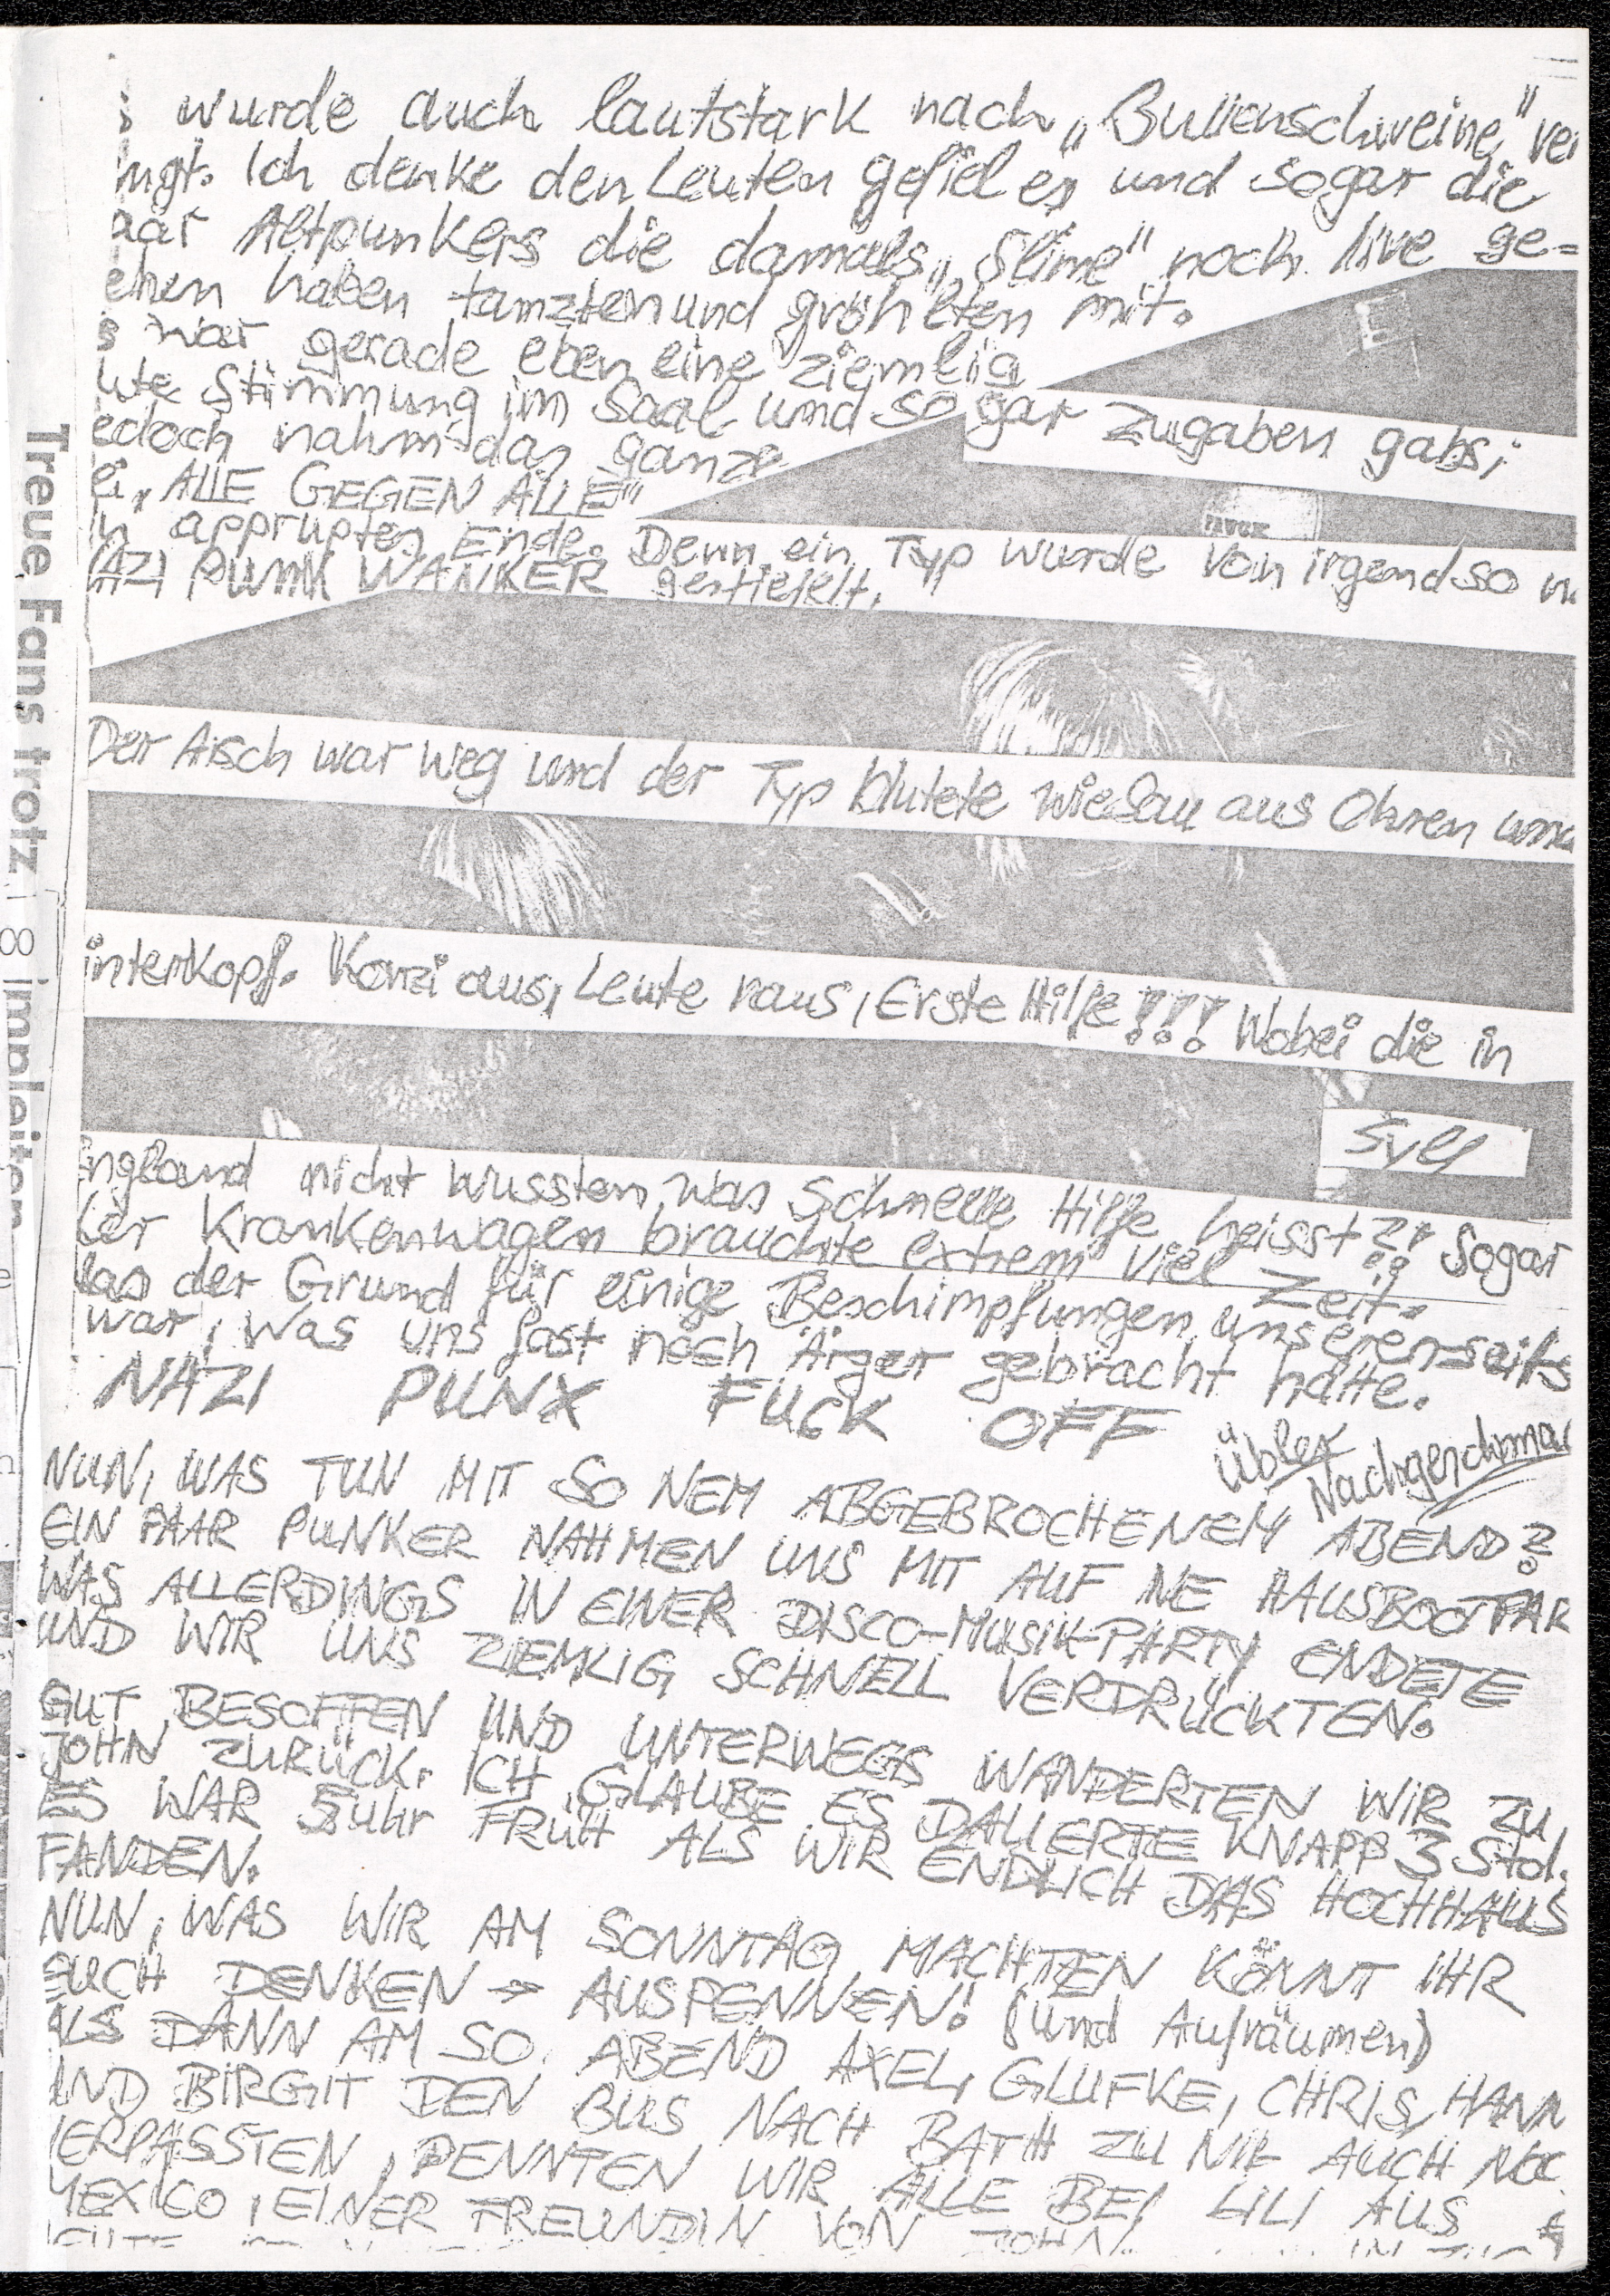 s wurde auch lautstark nach „Bullenschweine" ver
ngt. Ich denke den Leuten gefiel es und sogar die
aar Altpunkers die damals „Slime" noch live ge=
ehen haben tanzten und gröhlten mit.
s war gerade eben eine ziemlig
ute Stimmung im Saal und sogar Zugaben gabs;
edoch nahm das ganze
ei „ALLE GEGEN ALLE"
n appruptes Ende. Denn ein Typ wurde von irgendso n
NAZI PUNK WANKER gestiefelt.
Der Arsch war weg und der Typ blutete wie Sau aus Ohren und
interkopf. Konzi aus, Leute raus, Erste Hilfe!!! Wobei die in
Syll
England nicht wussten was Schnelle Hilfe heisst?! Sogar
der Krankenwagen brauchte extrem viel Zeit.
das der Grund für einige Beschimpfungen unsererseits
war, was uns fast noch Ärger gebracht hätte.
NAZI PUNX FUCK OFF
übler Nachgeschma
NUN, WAS TUN MIT SO NEM ABGEBROCHENEM ABEND?
EIN PAAR PUNKER NAHMEN UNS MIT AUF NE HAUSBOOTPAR
WAS ALLERDINGS IN EINER DISCO-MUSIK-PARTY ENDETE
UND WIR UNS ZIEMLIG SCHNELL VERDRÜCKTEN.
GUT BESOFFEN UND UNTERWEGS WANDERTEN WIR ZU
JOHN ZURÜCK. ICH GLAUBE ES DAUERTE KNAPP 3 Std.
ES WAR 5 uhr FRÜH ALS WIR ENDLICH DAS HOCHHAUS
FANDEN.
NUN, WAS WIR AM SONNTAG MACHTEN KÖNNT IHR
EUCH DENKEN → AUSPENNEN! (und Aufräumen)
ALS DANN AM SO. ABEND AXEL, GLUFKE, CHRIS, HANN
UND BIRGIT DEN BUS NACH BATH ZU NIK AUCH NOC
VERPASSTEN, PENNTEN WIR ALLE BEI LILI AUS
MEXICO, EINER FREUNDIN VON JOHN.
Treue Fans trotz
8 impleiten